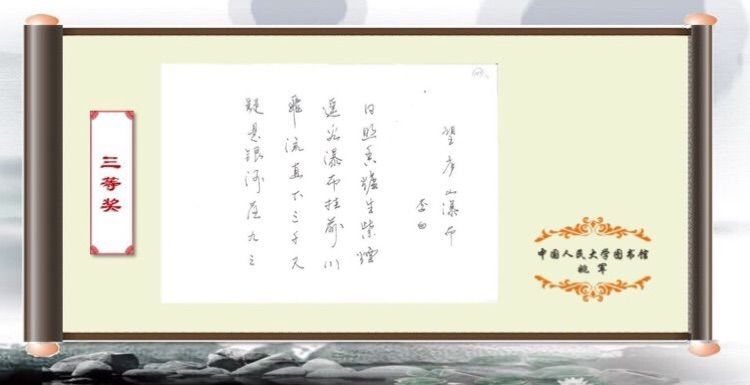 望庐山瀑布
李白
日照香爐生紫煙
遥看瀑布挂前川
飛流直下三千尺
疑是银河落九天
三等奖
中国人民大学图书馆
姚军